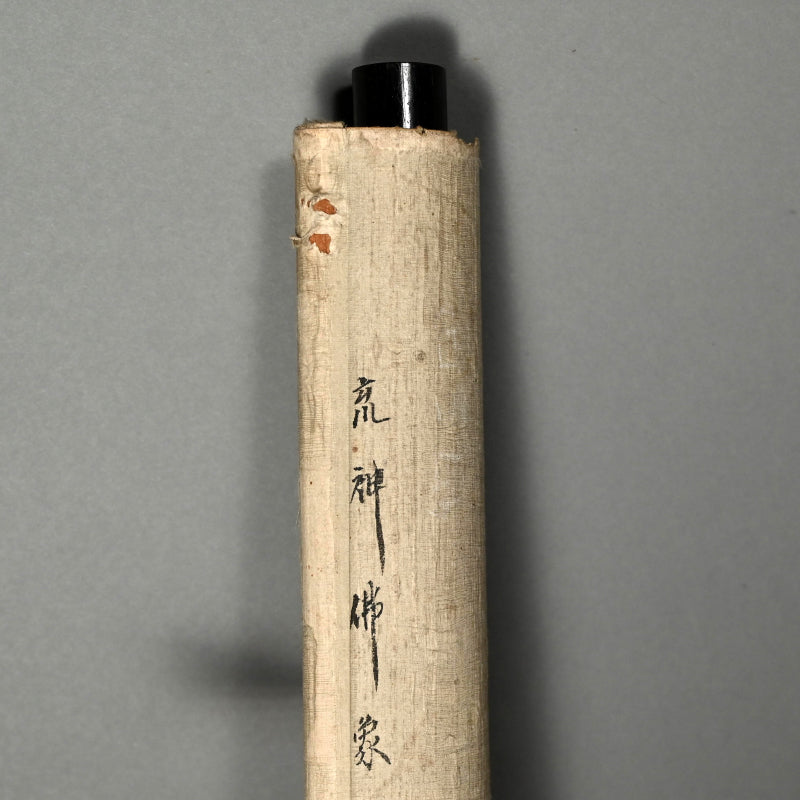 荒神佛象